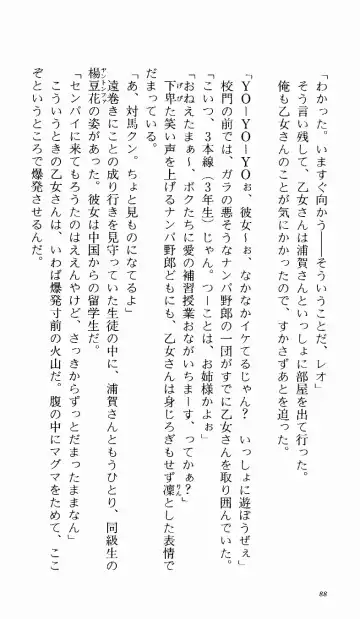 「わかった。いますぐ向かう――そういうことだ、レオ」
そう言い残して、乙女さんは浦賀さんといっしょに部屋を出て行った。
俺も乙女さんのことが気にかかったので、すかさずあとを追った。
「YO―YO―YOぉ、彼女～ぉ、なかなかイケてるじゃん？　いっしょに遊ぼうぜぇ」
校門の前では、ガラの悪そうなナンパ野郎の一団がすでに乙女さんを取り囲んでいた。
「こいつ、３本線（３年生）じゃん。つーことは、お姉様かよぉ」
「おねえたまぁ～、ボクたちに愛の補習授業おながいちまーす、ってかぁ？」
下卑た笑い声を上げるナンパ野郎どもにも、乙女さんは身じろぎもせず凜とした表情で
だまっている。
「あ、対馬クン。ちょと見ものになてるよ」
遠巻きにことの成り行きを見守っていた生徒の中に、浦賀さんともうひとり、同級生の
楊豆花の姿があった。彼女は中国からの留学生だ。
「センパイに来てもろうたのはええんやけど、さっきからずっとだまったままなん」
こういうときの乙女さんは、いわば爆発寸前の火山だ。腹の中にマグマをためて、ここ
ぞというところで爆発させるんだ。
88